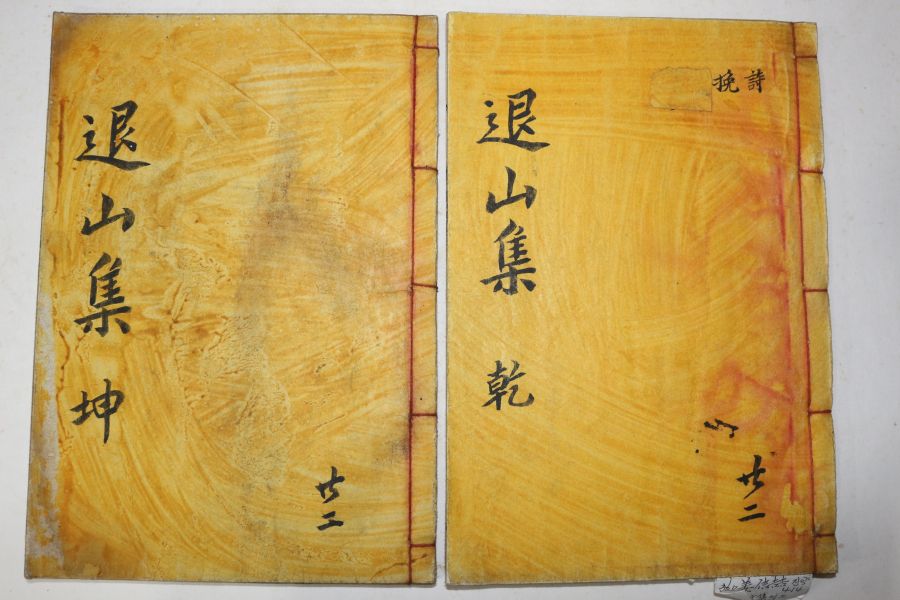 詩
挽
退山集 乾
共二
退山集 坤
共二